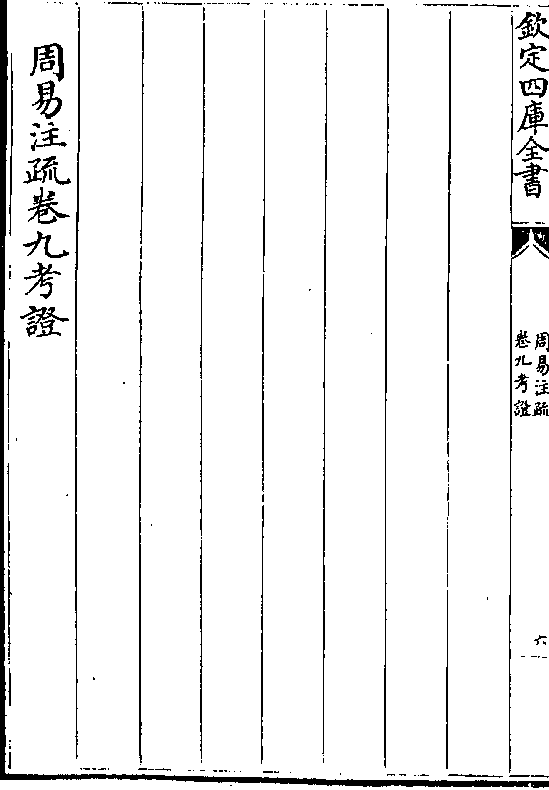 欽定四庫全書
周易注疏
卷九考證
六
周易注疏卷九考證